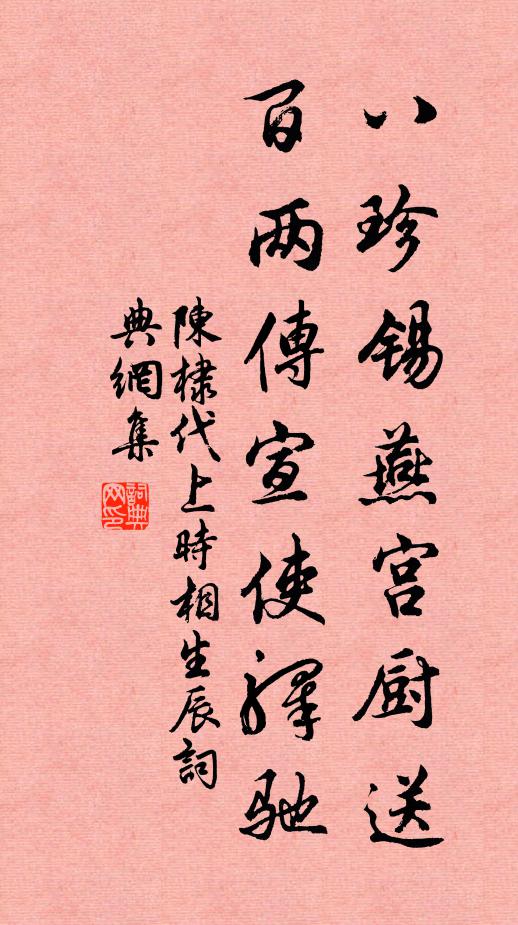 八珍锡燕宫厨送
百两傳宣使驛驰
陳棣代上時相生辰詞
典網集
詞典
网印